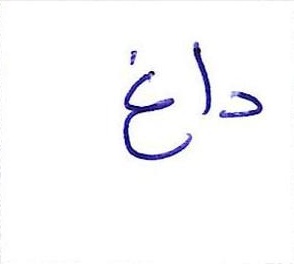 داغ